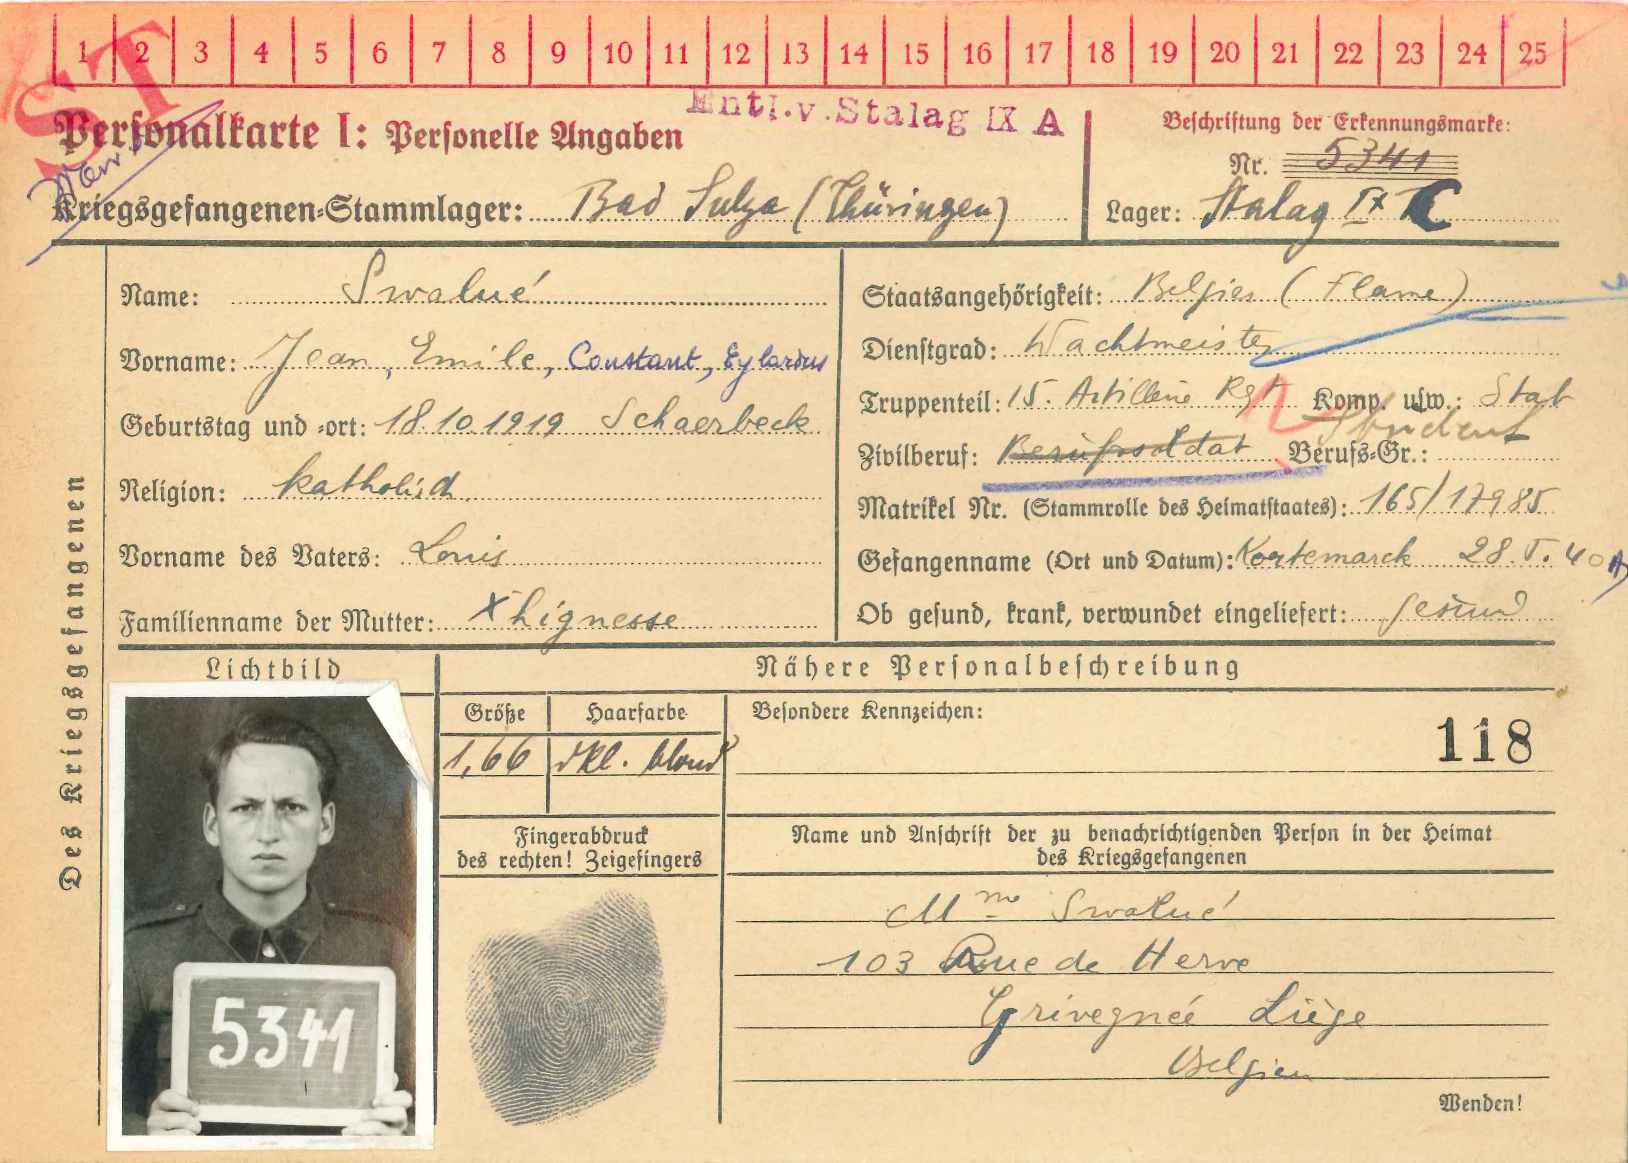 1 2 3 4 5 6 7 8 9 10 11 12 13 14 15 16 17 18 19 20 21 22 23 24 25
ST
Entl.v.Stalag IX A
Personalkarte I: Personelle Angaben
Beschriftung der Erkennungsmarke:
Nr. 5341
Kriegsgefangenen-Stammlager: Bad Sulza (Thüringen)
Lager: Stalag IX C
Des Kriegsgefangenen
Name: Swalué
Vorname: Jean, Emile, Constant, Eylardus
Geburtstag und -ort: 18.10.1919 Schaerbeek
Religion: katholisch
Vorname des Vaters: Louis
Familienname der Mutter: Xhignesse
Staatsangehörigkeit: Belgien (Flame)
Dienstgrad: Wachtmeister
Truppenteil: 15. Artillerie Rgt Komp. usw.: Stab
Student
Zivilberuf: Berufssoldat Berufs-Gr.:
Matrikel Nr. (Stammrolle des Heimatstaates): 165/17985
Gefangennahme (Ort und Datum): Kortemarck 28.V.40
Ob gesund, krank, verwundet eingeliefert: gesund
Lichtbild
Nähere Personalbeschreibung
Größe Haarfarbe Besondere Kennzeichen:
1,66 dkl. blond
118
Fingerabdruck
des rechten! Zeigefingers
Name und Anschrift der zu benachrichtigenden Person in der Heimat
des Kriegsgefangenen
Mme Swalué
103 Rue de Herve
Grivegnée Liège
Belgien
5341
Wenden!